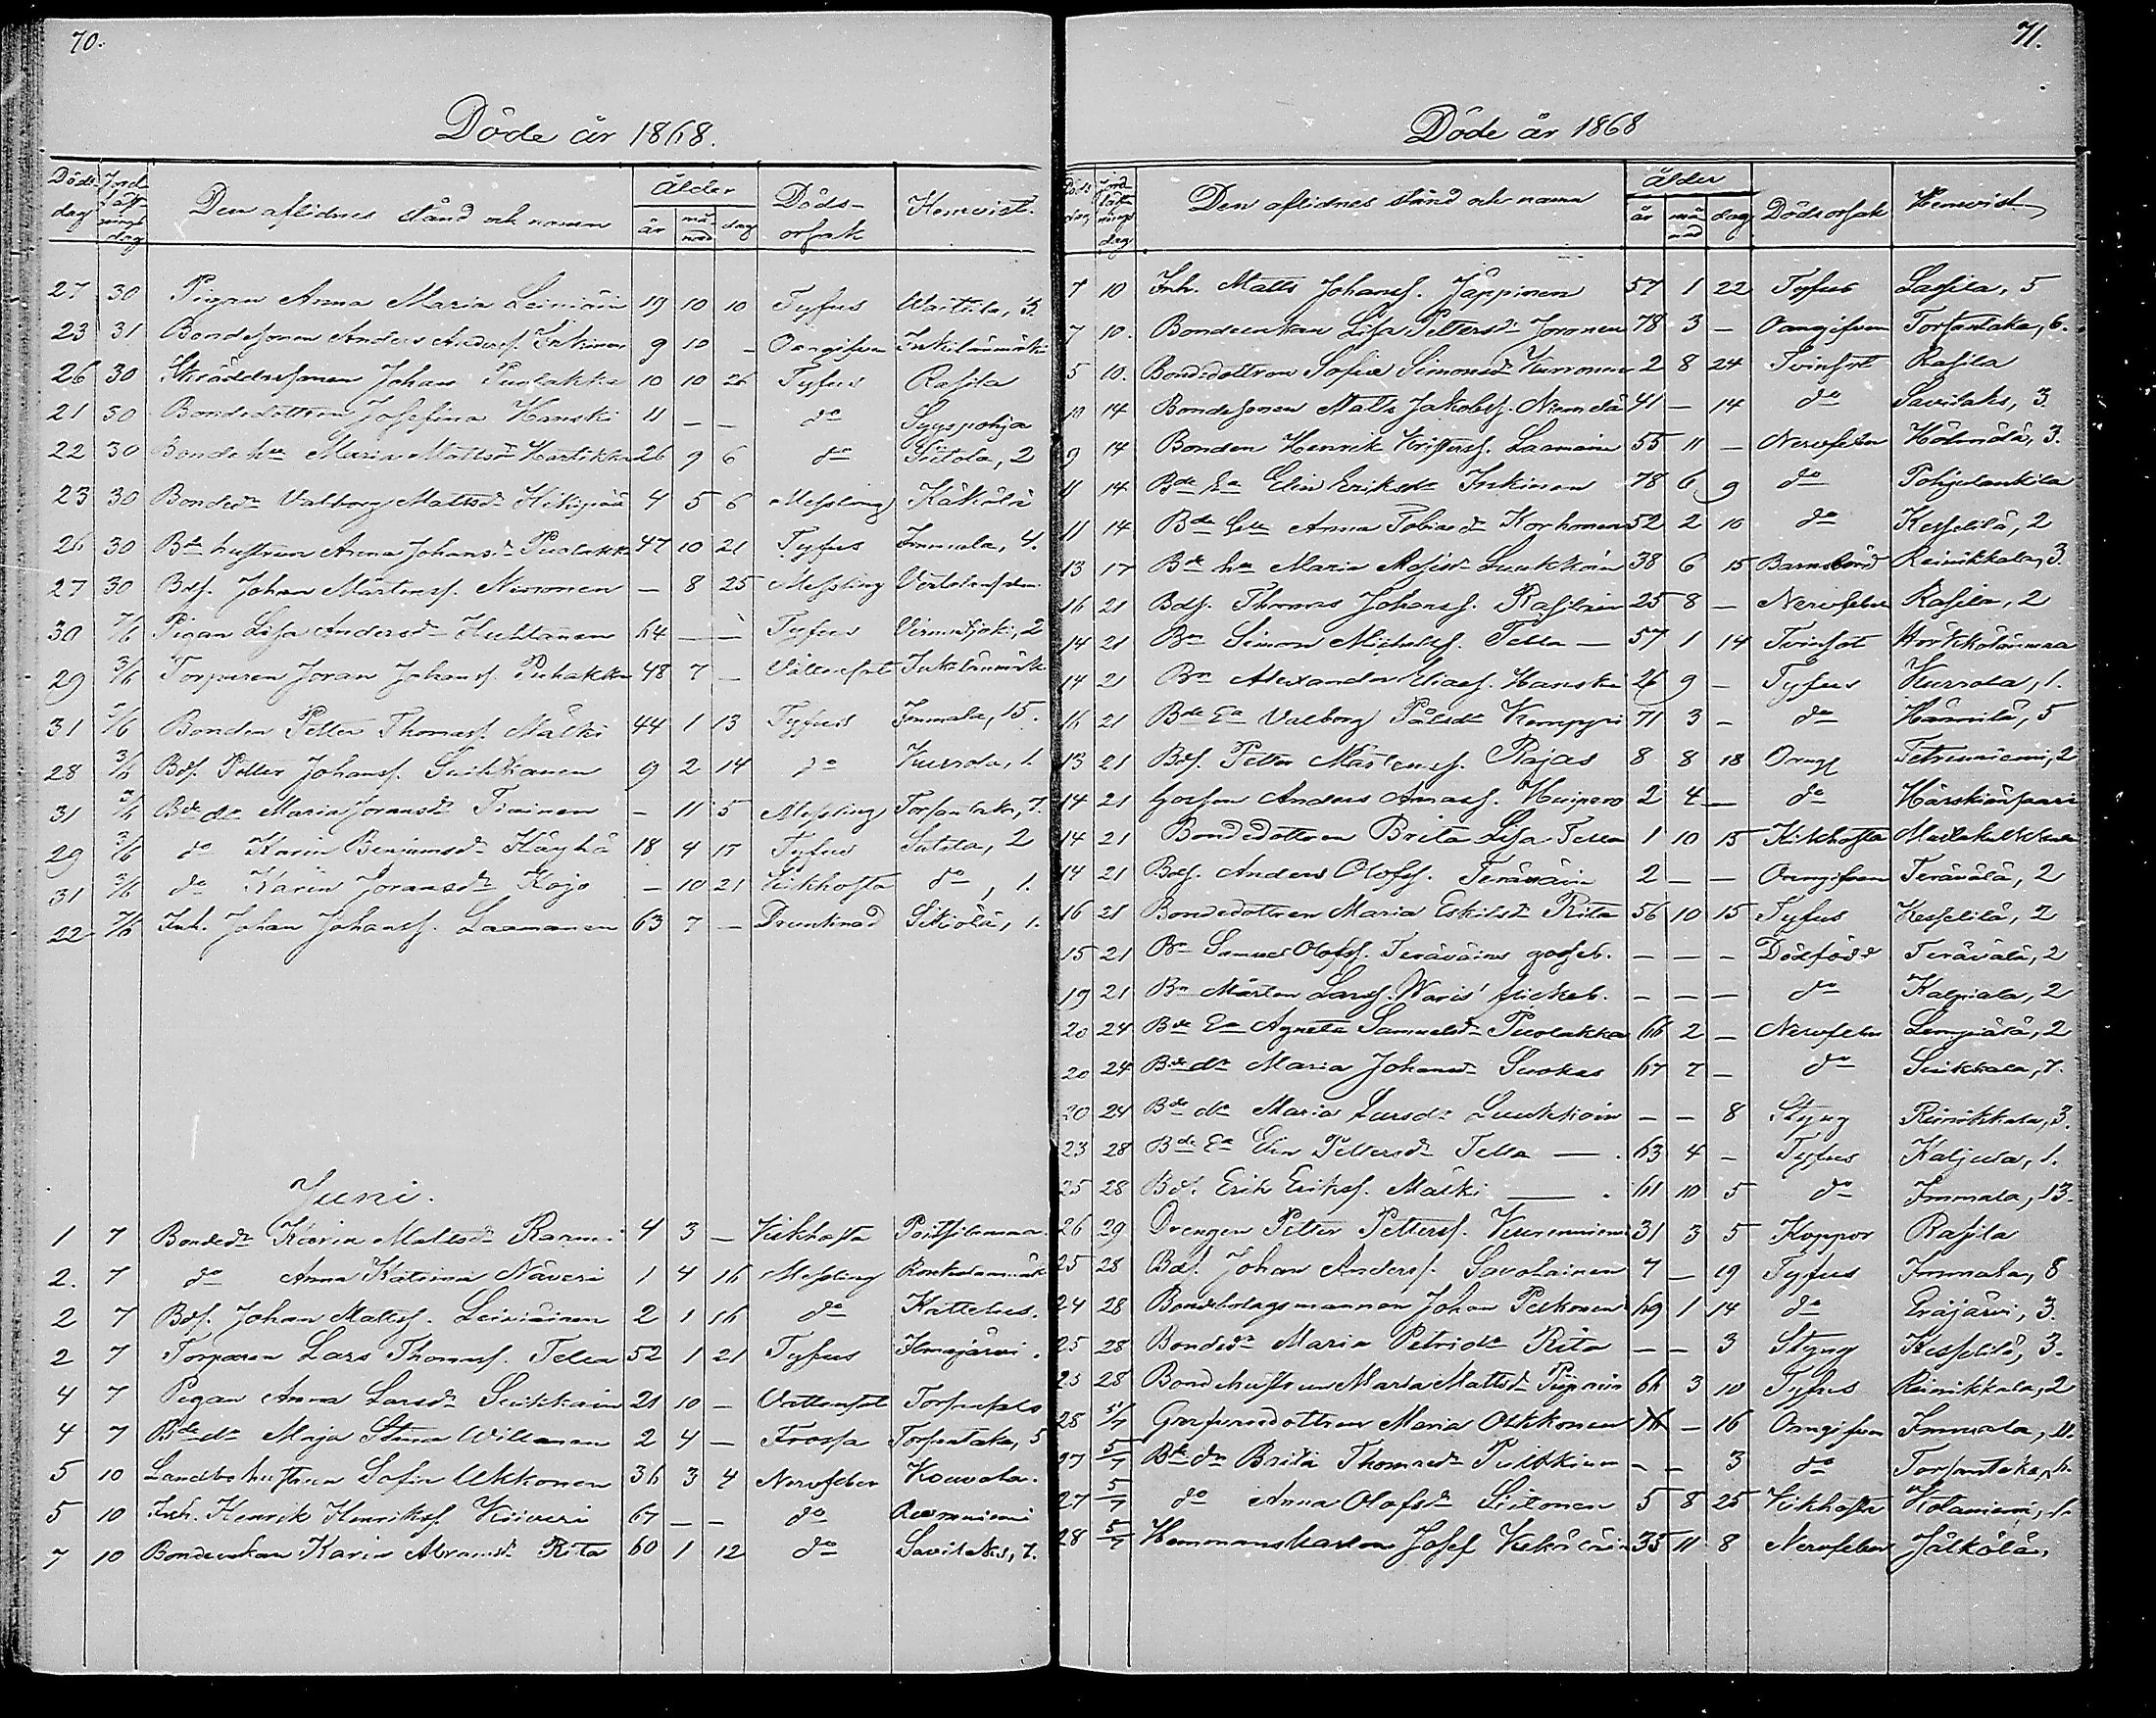 70.
Döde år 1868.
Döds dag Jord fäst nings dag Den aflidnes stånd och namn ålder år må nad dag Döds- orsak Hemvist.
27 30 Pigan Anna Maria Leiniäin 19 10 10 Tyfus Waittila, 3.
23 31 Bondesonen Anders Anderss. Inkinen 9 10 - Oangifven Inkilänmäki
26 30 Skräddaresonen Johan Puolakka 10 10 26 Tyfus Rasila
21 30 Bondedottren Josefina Hanski 11 - - do Syyspohja
22 30 Bonde hu Maria Mattsdr Hartikka 26 9 6 do Sitola, 2
23 30 Bondedr Valborg Mattsdr 4 5 6 Messling Käkölä
26 30 Bde hustrun Anna Johansdr Puolakka 47 10 21 Tyfus Immala, 4.
27 30 Bds. Johan Mårtenss. Nironen - 8 25 Messling
30 7/6 Pigan Lisa Andersdr Huhtanen 64 - - Tyfus Virmutjoki, 2
29 3/6 Torparen Jöran Johanss. Puhakka 48 7 - Vattensot Inkilänmäki
31 7/6 Bonden Petter Thomass. Mälki 44 1 13 Tyfus Immala, 15.
28 3/6 Bds. Petter Johanss. Suikkanen 9 2 14 do Kurrola, 1.
31 3/6 Bde dr Maria Joransdr Tiainen - 11 5 Messling Torsantaka, 7.
29 3/6 do Karin Benjamsdr Käyhä 18 4 17 Tyfus Sitola, 2
31 3/6 do Karin Joransdr Kojo - 10 21 Kikhosta do, 1.
22 7/6 Inh. Johan Johanss. Laamanen 63 7 - Drunknad 1.
Juni.
1 7 Bondedr Karin Mattsdr Rarmi 4 3 - Kikhosta
2. 7 do Anna Katrina Näveri 1 4 16 Messling
2 7 Bds. Johan Mattss. Leiniäinen 2 1 16 do Kattelus.
2 7 Torparen Lars Thomass. Tella 52 1 21 Tyfus Ilmajärvi.
4 7 Pigan Anna Larsdr Suikkain 21 10 - Vattensot
4 7 Bde dr Maja Stina Willanen 2 4 - Frossa Torsantaka, 5
5 10 Landbo hustrun Sofia Ukkonen 36 3 4 Nervfeber Kouvola.
5 10 Inh. Henrik Henrikss. Kiiveri 67 - - do
7 10 Bondeenkan Karin Abramsdr Rita 60 1 12 do Savilaks, 7.
71.
Döde år 1868
Döds dag Jord fäst nings dag Den aflidnes stånd och namn ålder år må nad dag Dödsorsak Hemvist
7 10 Inh. Matts Johanss. Jäppinen 57 1 22 Tyfus Lassila, 5
7 10. Bondeenkan Lisa Pettersdr Joronen 78 3 - Oangifven Torsantaka, 6.
5 10. Bondedottren Sofia Simonsdr Kurronen 2 8 24 Tvinsot Rasila
10 14 Bondesonen Matts Jakobss. Niemelä 41 - 14 do Savilaks, 3.
9 14 Bonden Henrik Kristerss. Laamain 55 11 - Nervfeber 3.
11 14 Bde Ea Elin Eriksdr Inkinen 78 6 9 do Pohjalankila
11 14 Bde Ea Anna Tobiasdr Korhonen 52 2 10 do Kesselilä, 2
13 17 Bde hu Maria Mosisdr Luukkain 38 6 15 Barnsbörd Reinikkala, 3.
16 21 Bds. Thomas Johanss. Rasilain 25 8 - Nervfeber Rasila, 2
14 21 Bn Simon Michelss. Tella - 57 1 14 Tvinsot Härkölänmaa
14 21 Bn Alexander Eliass. Hanski 26 9 - Tyfus Kurrola, 1.
16 21 Bde Ea Valborg Pålsdr Kemppi 71 3 - do Härmilä, 5
13 21 Bds. Petter Mårtenss. Rajas 8 8 18 Oangf Tetriniemi, 2
14 21 Gossen Anders Annass. Huipero 2 4 - do Härskiänsaari
14 21 Bondedottren Brita Lisa Tella 1 10 15 Kikhosta
14 21 Bds. Anders Olofss. Teräväin 2 - - Oangifven Terävälä, 2
16 21 Bondedottren Maria Eskilsdr Rita 56 10 15 Tyfus Kesselilä, 2
15 21 Bn Samuel Olofss. Teräväins gosseb. - - - Dödfödd Terävälä, 2
19 21 Bn Mårten Larss. Waris' flickeb. - - - do Kalpiala, 2
20 24 Bde Ea Agneta Samuelsdr Puolakka 66 2 - Nervfeber Lempiälä, 2
20 24 Bde dr Maria Johansdr Suokas 67 7 - do Suikkala, 7.
20 24 Bde dr Maria Larsdr Luukkain - - 8 Slag Reinikkala, 3.
23 28 Bde Ea Elin Pettersdr Tella - . 63 4 - Tyfus Kaljula, 1.
25 28 Bds. Erik Erikss. Mälki - . 61 10 5 do Immala, 13.
26 29 Drengen Petter Petterss. Kurenniemi 31 3 5 Koppor Rasila
25 28 Bds. Johan Anderss. Savolainen 7 - 19 Tyfus Immala, 8
24 28 Bondebolagsmannen Johan Peskonen 69 1 14 do Eräjärvi, 3.
25 28 Bondedr Maria Petridr Rita - - 3 Slag Kesselilä, 3.
25 28 Bondehustrun Maria Mattsdr Piiparin 66 3 10 Tyfus Reinikkala, 2
28 5/7 Maria Okkonen - 16 Oangifven Immala, 11.
27 5/7 Bde dr Brita Thomasdr Pulkkinen - - 3 do Torsantaka, 6.
27 5/7 do Anna Olofsdr Siitonen 5 8 25 Kikhosta
28 5/7 Hemmanskarlen Josef 35 11 8 Nervfeber Jälkölä,